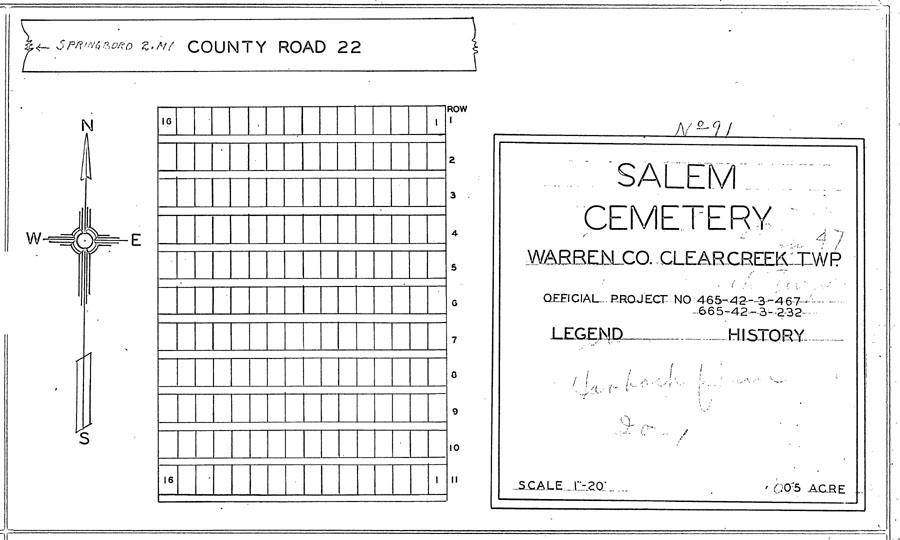 ← SPRINGBORO 2.MI COUNTY ROAD 22
N
W E
S
ROW
16 1 1
2
3
4
5
6
7
8
9
10
16 1 11
No 91
SALEM
CEMETERY
47
WARREN CO. CLEARCREEK TWP.
OFFICIAL PROJECT NO 465-42-3-467
665-42-3-232
LEGEND HISTORY
SCALE 1"-20' 0.05 ACRE